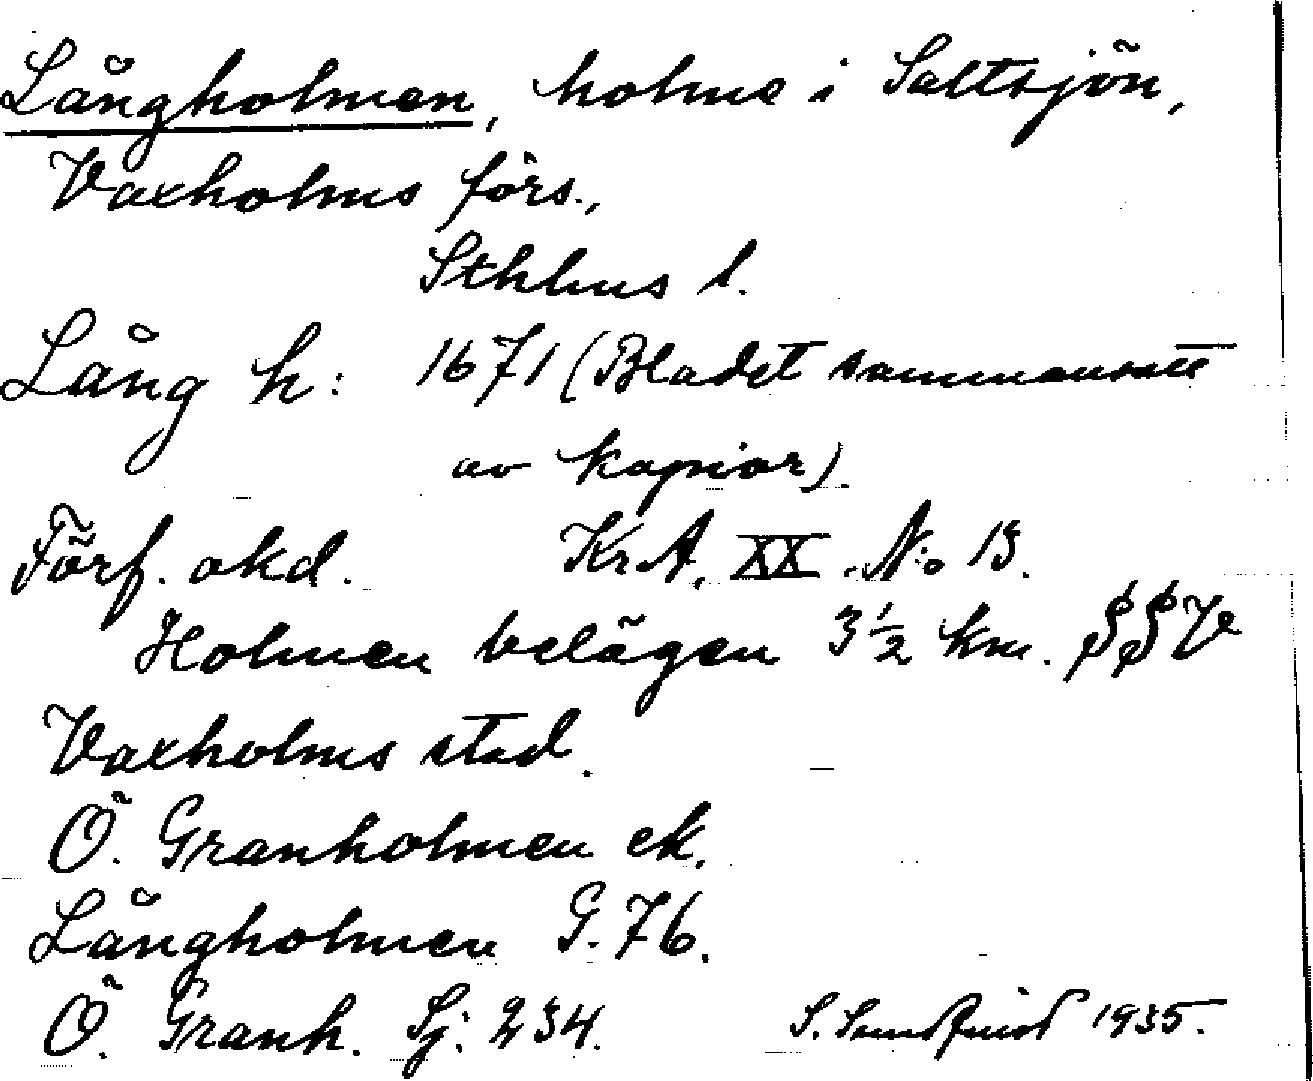 Långholmen, holme i Saltsjön,
Vaxholms förs.,
Sthlms l.
Lång h: 1671 (Bladet sammansatt
av kopior).
Förf. okd. KrA. XX. No 13.
Holmen belägen 3 1/2 km. SSV
Vaxholms stad.
Ö. Granholmen ek.
Långholmen G. 76.
Ö. Granh. Sj: 234. S. Sundqvist 1935.